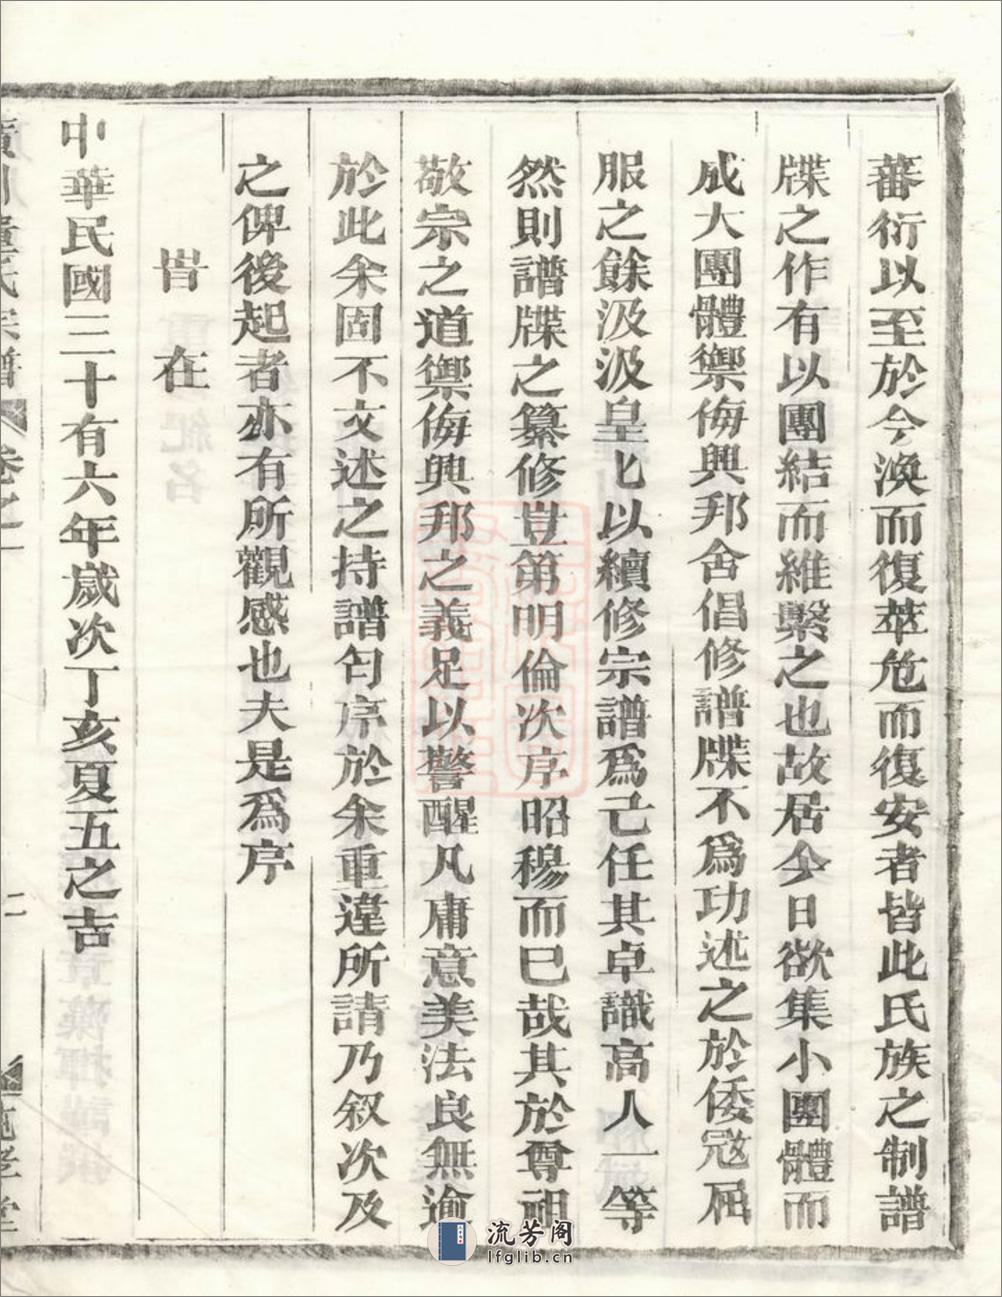 蕃衍以至於今渙而復萃危而復安者皆此氏族之制譜
牒之作有以團結而維繫之也故居今日欲集小團體而
成大團體禦侮興邦舍倡修譜牒不爲功述之於倭寇屈
服之餘汲汲皇皇以續修宗譜爲己任其卓識高人一等
然則譜牒之纂修豈第明倫次序昭穆而已哉其於尊祖
敬宗之道禦侮興邦之義足以警醒凡庸意美法良無逾
於此余固不文述之持譜匄序於余重違所請乃叙次及
之俾後起者亦有所觀感也夫是爲序
旹在
中華民國三十有六年歲次丁亥夏五之吉
流芳阁
lfglib.cn